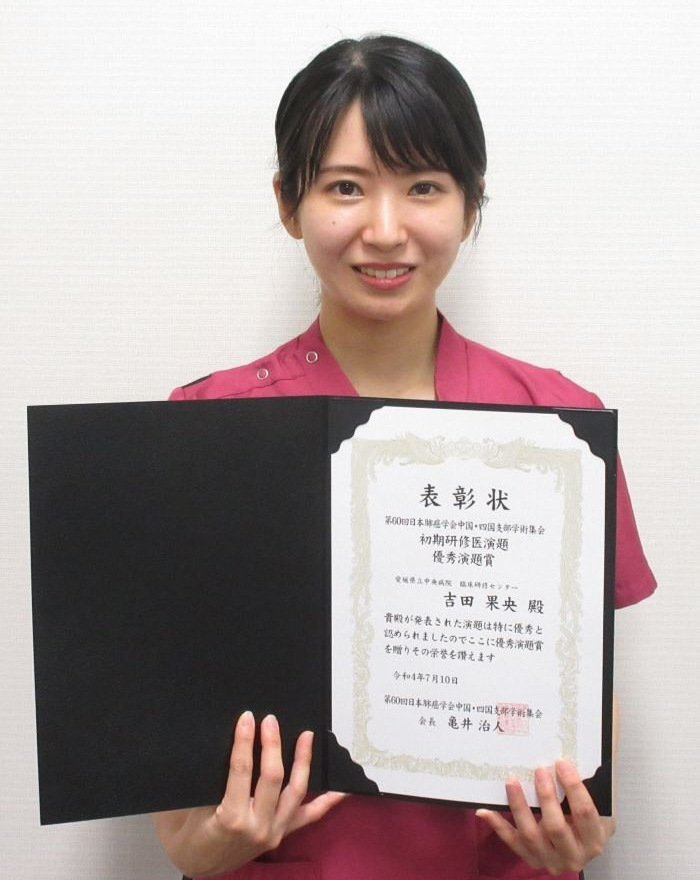 表彰状
第60回日本肺癌学会中国・四国支部学術集会
初期研修医演題
優秀演題賞
愛媛県立中央病院 臨床研修センター
吉田 果央 殿
貴殿が発表された演題は特に優秀と
認められましたのでここに優秀演題賞
を贈りその栄誉を讃えます
令和4年7月10日
第60回日本肺癌学会中国・四国支部学術集会
会長 亀井 治人